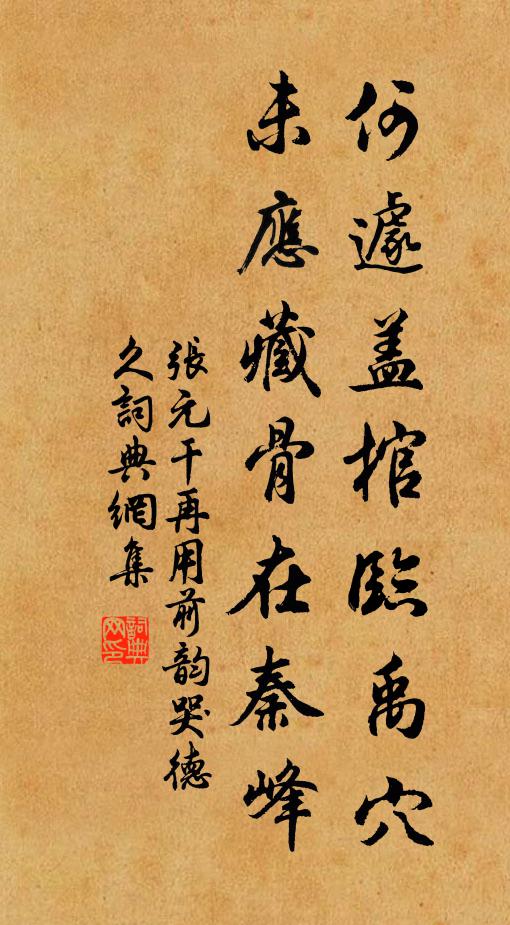 何遽盖棺臨禹穴
未應藏骨在秦峰
張元干再用前韵哭德
久詞典網集
詞典
网印